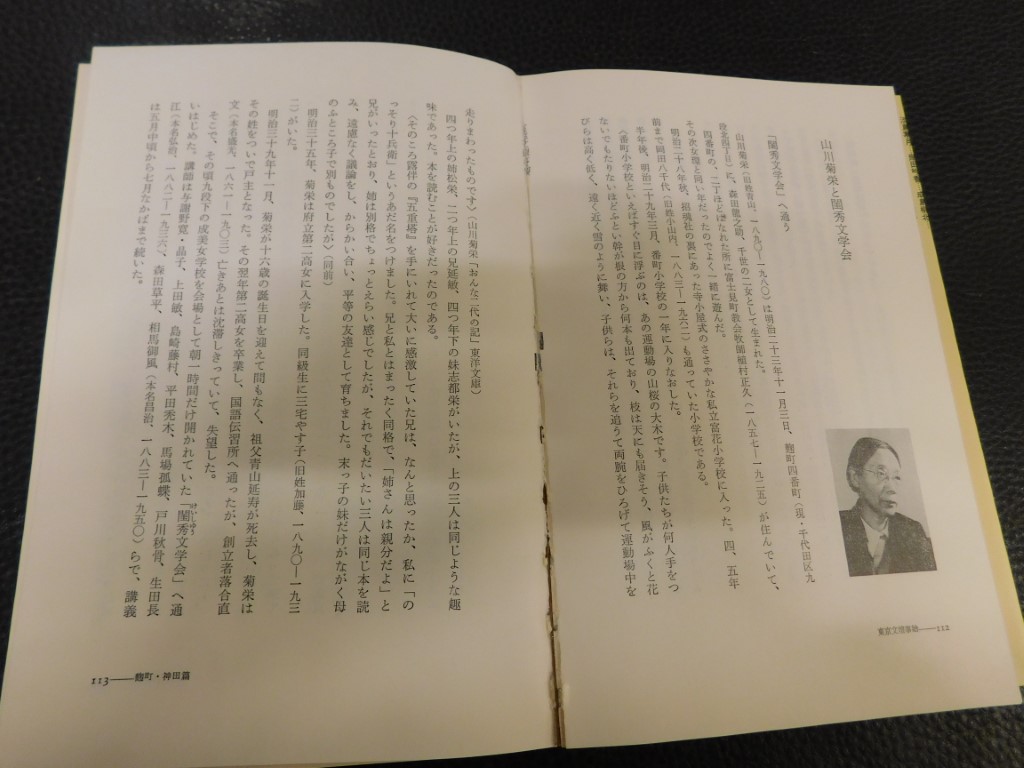 山川菊栄と閨秀文学会
「閨秀文学会」へ通う
山川菊栄(旧姓青山、一八九〇―一九八〇)は明治二十三年十一月三日、麹町四番町(現・千代田区九
段北四丁目)に、森田竜之助、千世の二女として生まれた。
四番町の、二丁ほどはなれた所に富士見町教会牧師植村正久(一八五七―一九二五)が住んでいて、
その次女環と同い年だったのでよく一緒に遊んだ。
明治二十八年秋、招魂社の裏にあった寺小屋式のささやかな私立富花小学校に入った。四、五年
前まで岡田八千代(旧姓小山内、一八八三―一九六二)も通っていた小学校である。
半年後、明治二十九年三月、番町小学校の一年に入りなおした。
〈番町小学校といえばすぐ目に浮ぶのは、あの運動場の山桜の大木です。子供たちが何人手をつ
ないでもたりないほどふとい幹が根の方から何本も出ており、枝は天にも届きそう、風がふくと花
びらは高く低く、遠く近く雪のように舞い、子供らは、それらを追うて両腕をひろげて運動場中を
東京文壇事始――112
走りまわったものです〉(山川菊栄『おんな二代の記』東洋文庫)
四つ年上の姉松栄、二つ年上の兄延敏、四つ年下の妹志都栄がいたが、上の三人は同じような趣
味であった。本を読むことが好きだったのである。
〈そのころ露伴の『五重塔』を手にいれて大いに感激していた兄は、なんと思ったか、私に「の
っそり十兵衛」というあだ名をつけました。兄と私とはまったく同格で、「姉さんは親分だよ」と
兄がいったとおり、姉は別格でちょっとえらい感じでしたが、それでもだいたい三人は同じ本を読
み、遠慮なく議論をし、からかい合い、平等の友達として育ちました。末っ子の妹だけがながく母
のふところ子で別ものでしたが〉(同前)
明治三十五年、菊栄は府立第二高女に入学した。同級生に三宅やす子(旧姓加藤、一八九〇―一九三
二)がいた。
明治三十九年十一月、菊栄が十六歳の誕生日を迎えて間もなく、祖父青山延寿が死去し、菊栄は
その姓をついで戸主となった。その翌年第二高女を卒業し、国語伝習所へ通ったが、創立者落合直
文(本名盛光、一八六一―一九〇三)亡きあとは沈滞しきっていて、失望した。
そこで、その頃九段下の成美女学校を会場として朝一時間だけ開かれていた「閨秀文学会」へ通
いはじめた。講師は与謝野寛・晶子、上田敏、島崎藤村、平田禿木、馬場孤蝶、戸川秋骨、生田長
江(本名弘治、一八八二―一九三六)、森田草平、相馬御風(本名昌治、一八八三―一九五〇)らで、講義
は五月中頃から七月なかばまで続いた。
113――麹町・神田篇